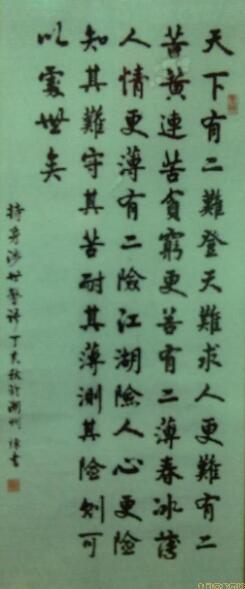 天下有二難登天難求人更難有二
苦黃連苦貧窮更苦有二薄春冰薄
人情更薄有二險江湖險人心更險
知其難守其苦耐其薄測其險刻可
以處世矣
持身涉世警譯丁亥秋於湖州